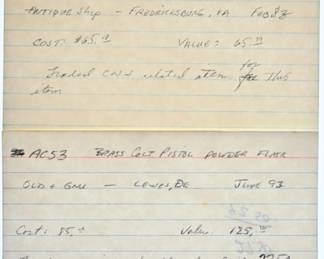 ANTIQUE Shop - FREDRICKSBURG, VA Feb 82
COST: $65.00 VALUE: 65.00
Traded CW & related item for this
item
AC53 BRASS COLT PISTOL POWDER FLASK
OLD & GNU - LEWES, DE JUNE 93
Cost: 85.00 Value 125.00